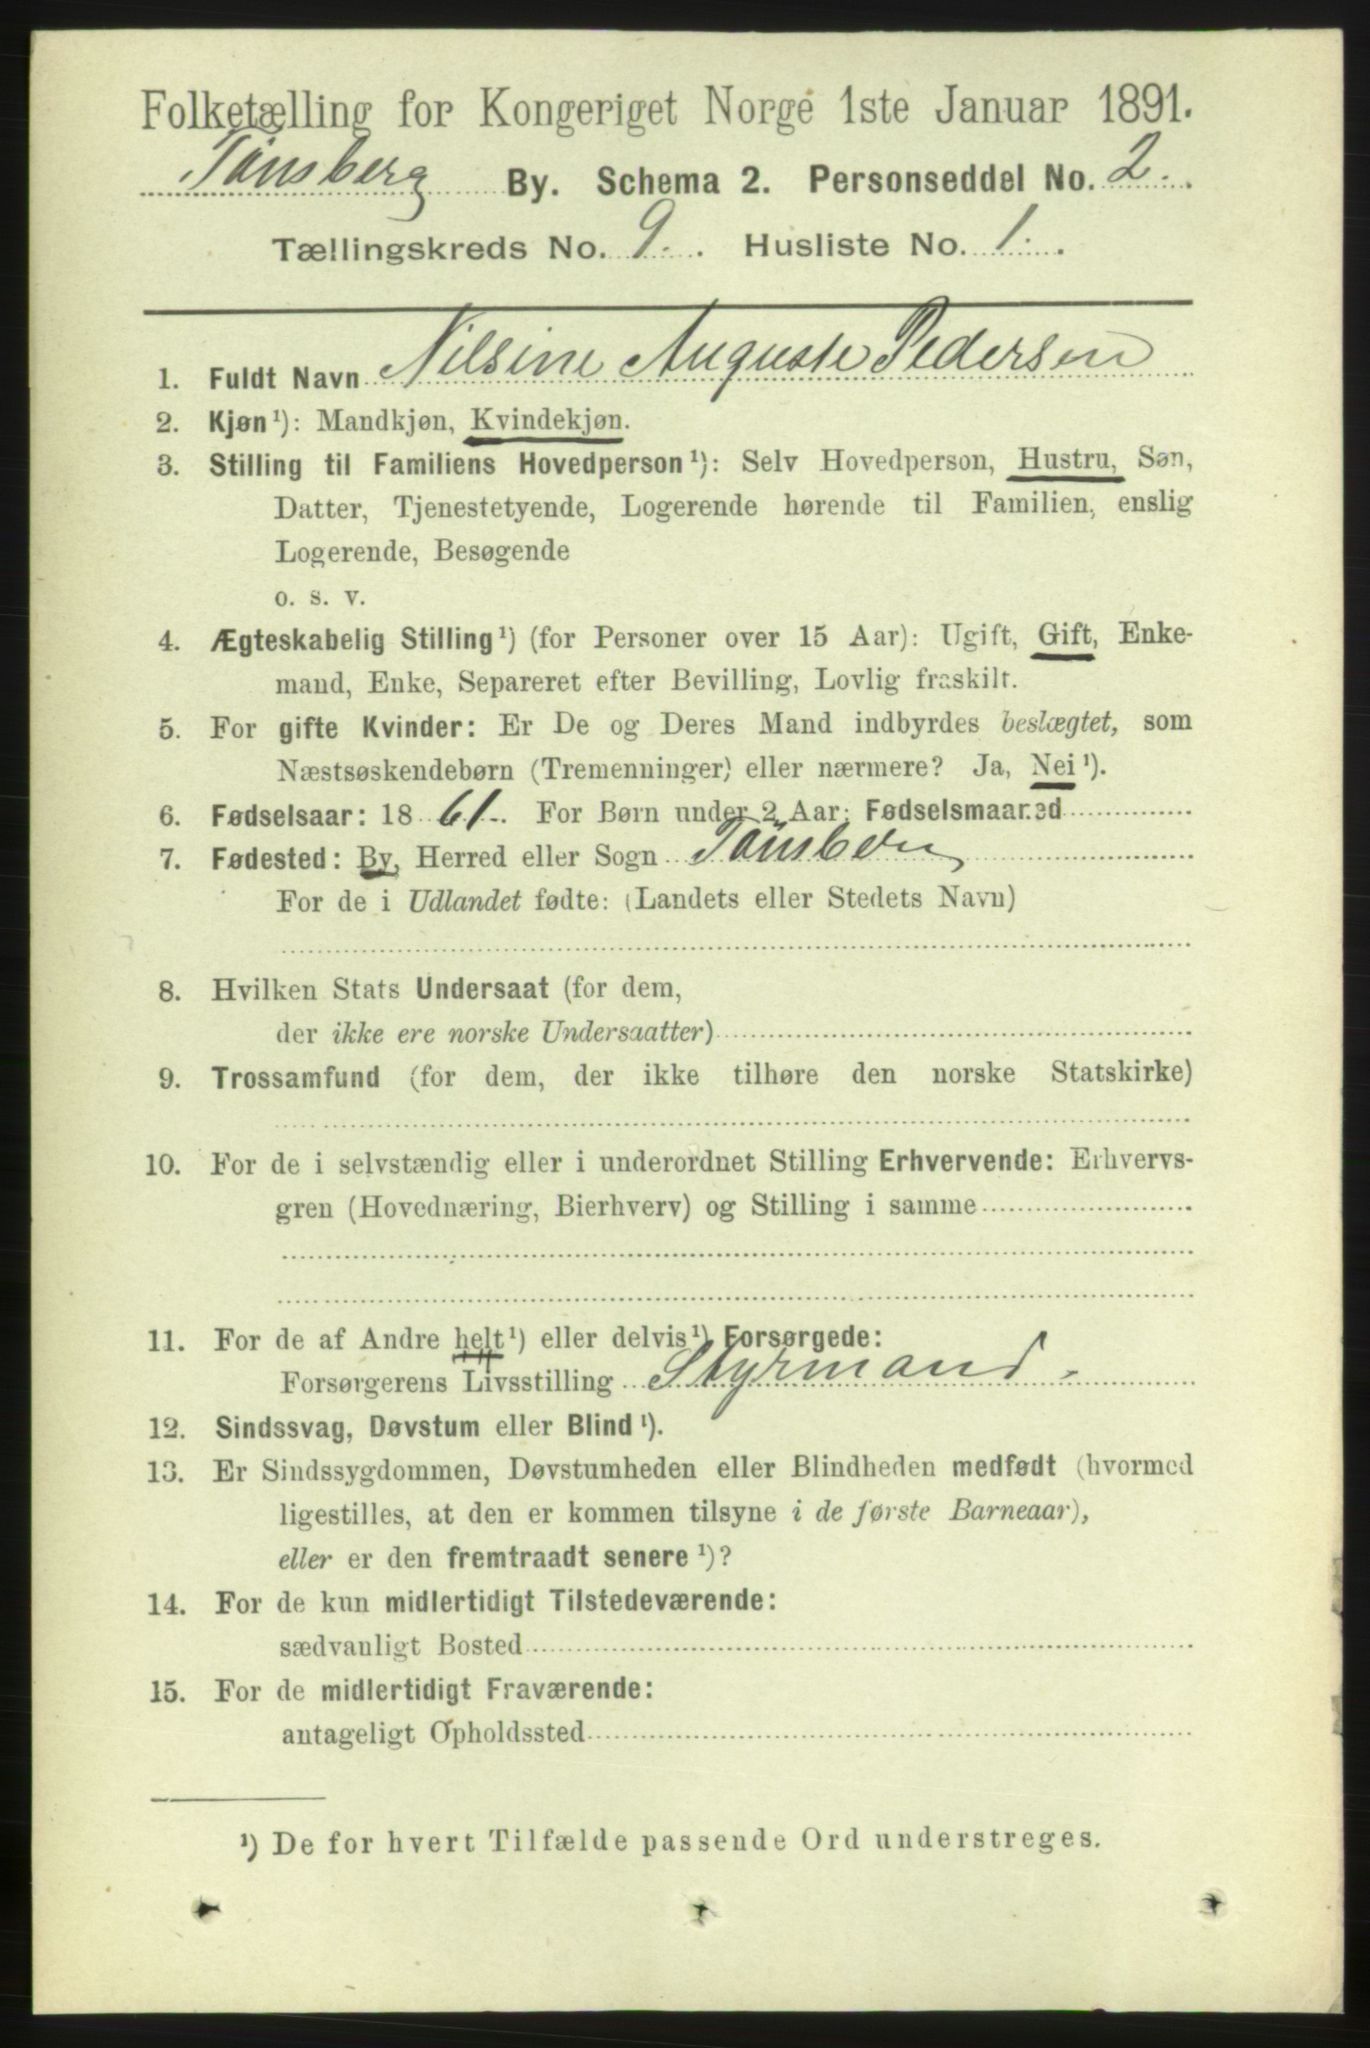 Folketælling for Kongeriget Norge 1ste Januar 1891.
Tønsberg By. Schema 2. Personseddel No. 2.
Tællingskreds No. 9. Husliste No. 1.
1. Fuldt Navn Nilsine Auguste Pedersen
2. Kjøn¹): Mandkjøn, Kvindekjøn.
3. Stilling til Familiens Hovedperson¹): Selv Hovedperson, Hustru, Søn,
Datter, Tjenestetyende, Logerende hørende til Familien, enslig
Logerende, Besøgende
o. s. v.
4. Ægteskabelig Stilling¹) (for Personer over 15 Aar): Ugift, Gift, Enke-
mand, Enke, Separeret efter Bevilling, Lovlig fraskilt.
5. For gifte Kvinder: Er De og Deres Mand indbyrdes beslægtet, som
Næstsøskendebørn (Tremenninger) eller nærmere? Ja, Nei¹).
6. Fødselsaar: 1861. For Børn under 2 Aar: Fødselsmaaned
7. Fødested: By, Herred eller Sogn Tønsberg
For de i Udlandet fødte: (Landets eller Stedets Navn)
8. Hvilken Stats Undersaat (for dem,
der ikke ere norske Undersaatter)
9. Trossamfund (for dem, der ikke tilhøre den norske Statskirke)
10. For de i selvstændig eller i underordnet Stilling Erhvervende: Erhvervs-
gren (Hovednæring, Bierhverv) og Stilling i samme
11. For de af Andre helt¹) eller delvis¹) Forsørgede:
Forsørgerens Livsstilling Styrmand.
12. Sindssvag, Døvstum eller Blind¹).
13. Er Sindssygdommen, Døvstumheden eller Blindheden medfødt (hvormed
ligestilles, at den er kommen tilsyne i de første Barneaar),
eller er den fremtraadt senere¹)?
14. For de kun midlertidigt Tilstedeværende:
sædvanligt Bosted
15. For de midlertidigt Fraværende:
antageligt Opholdssted
¹) De for hvert Tilfælde passende Ord understreges.